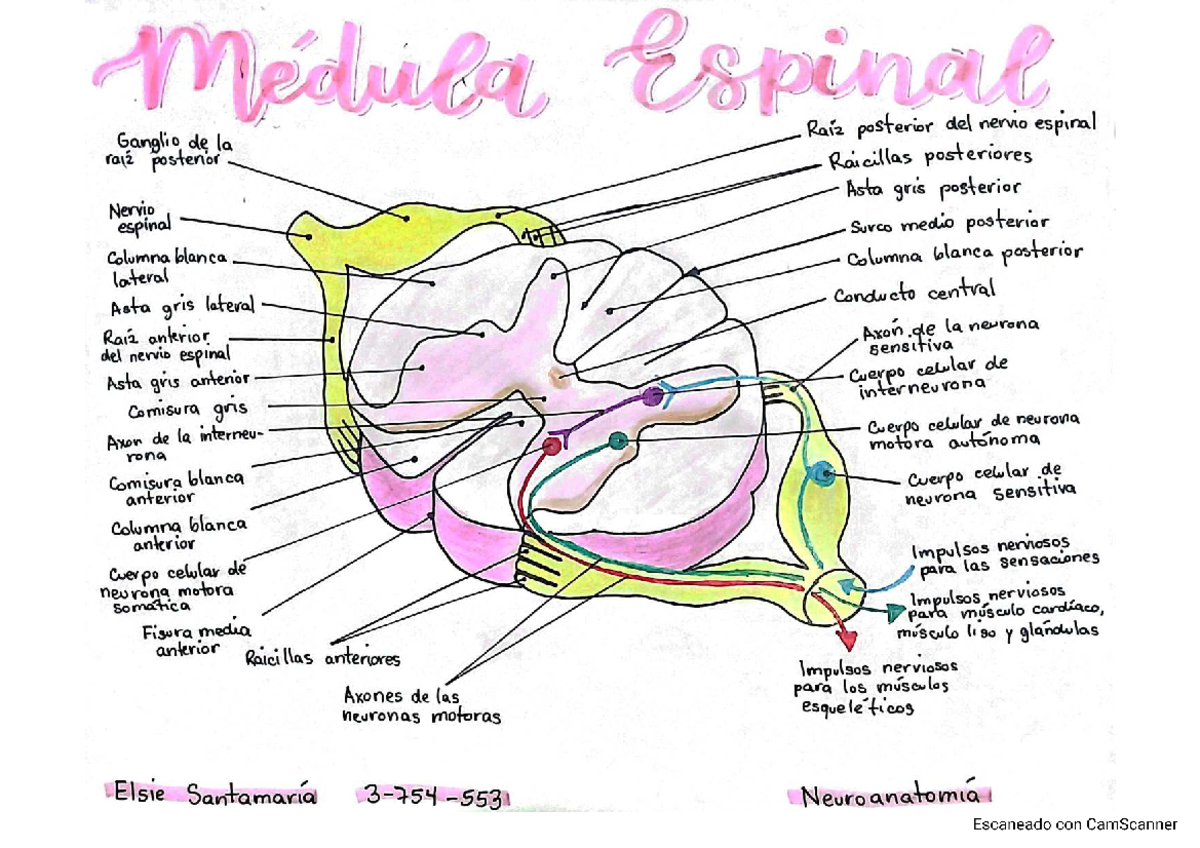 Médula Espinal
Ganglio de la
raíz posterior
Nervio
espinal
Columna blanca
lateral
Asta gris lateral
Raíz anterior
del nervio espinal
Asta gris anterior
Comisura gris
Axon de la interneu-
rona
Comisura blanca
anterior
Columna blanca
anterior
Cuerpo celular de
neurona motora
somática
Fisura media
anterior
Raicillas anteriores
Axones de las
neuronas motoras
Raíz posterior del nervio espinal
Raicillas posteriores
Asta gris posterior
Surco medio posterior
Columna blanca posterior
Conducto central
Axón de la neurona
sensitiva
Cuerpo celular de
interneurona
Cuerpo celular de neurona
motora autónoma
Cuerpo celular de
neurona sensitiva
Impulsos nerviosos
para las sensaciones
Impulsos nerviosos
para músculo cardíaco,
músculo liso y glándulas
Impulsos nerviosos
para los músculos
esqueléticos
Elsie Santamaría 3-754-553 Neuroanatomía
Escaneado con CamScanner